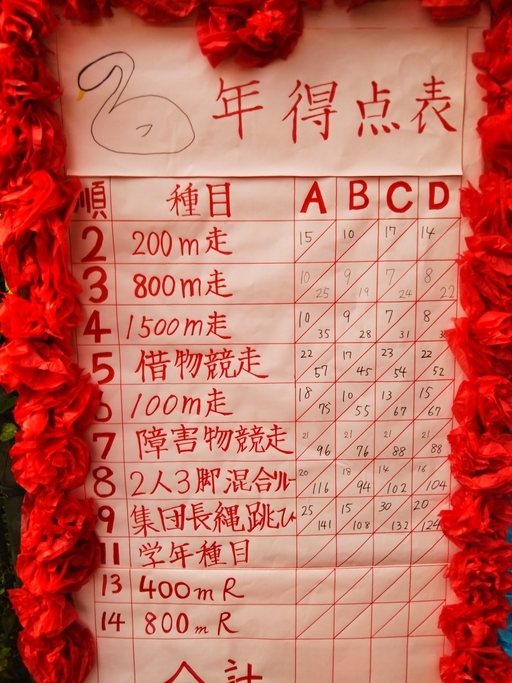 年得点表
順 種目 A B C D
2 200m走 15 10 17 14
3 800m走 10 25 9 19 7 24 8 22
4 1500m走 10 35 9 28 7 31 8
5 借物競走 22 57 17 45 23 54 22 52
6 100m走 18 75 10 55 13 67 15 67
7 障害物競走 21 96 21 76 21 88 21 88
8 2人3脚混合リレー 20 116 18 94 14 102 16 104
9 集団長縄跳び 25 141 15 108 30 132 20 124
11 学年種目
13 400mR
14 800mR
合計